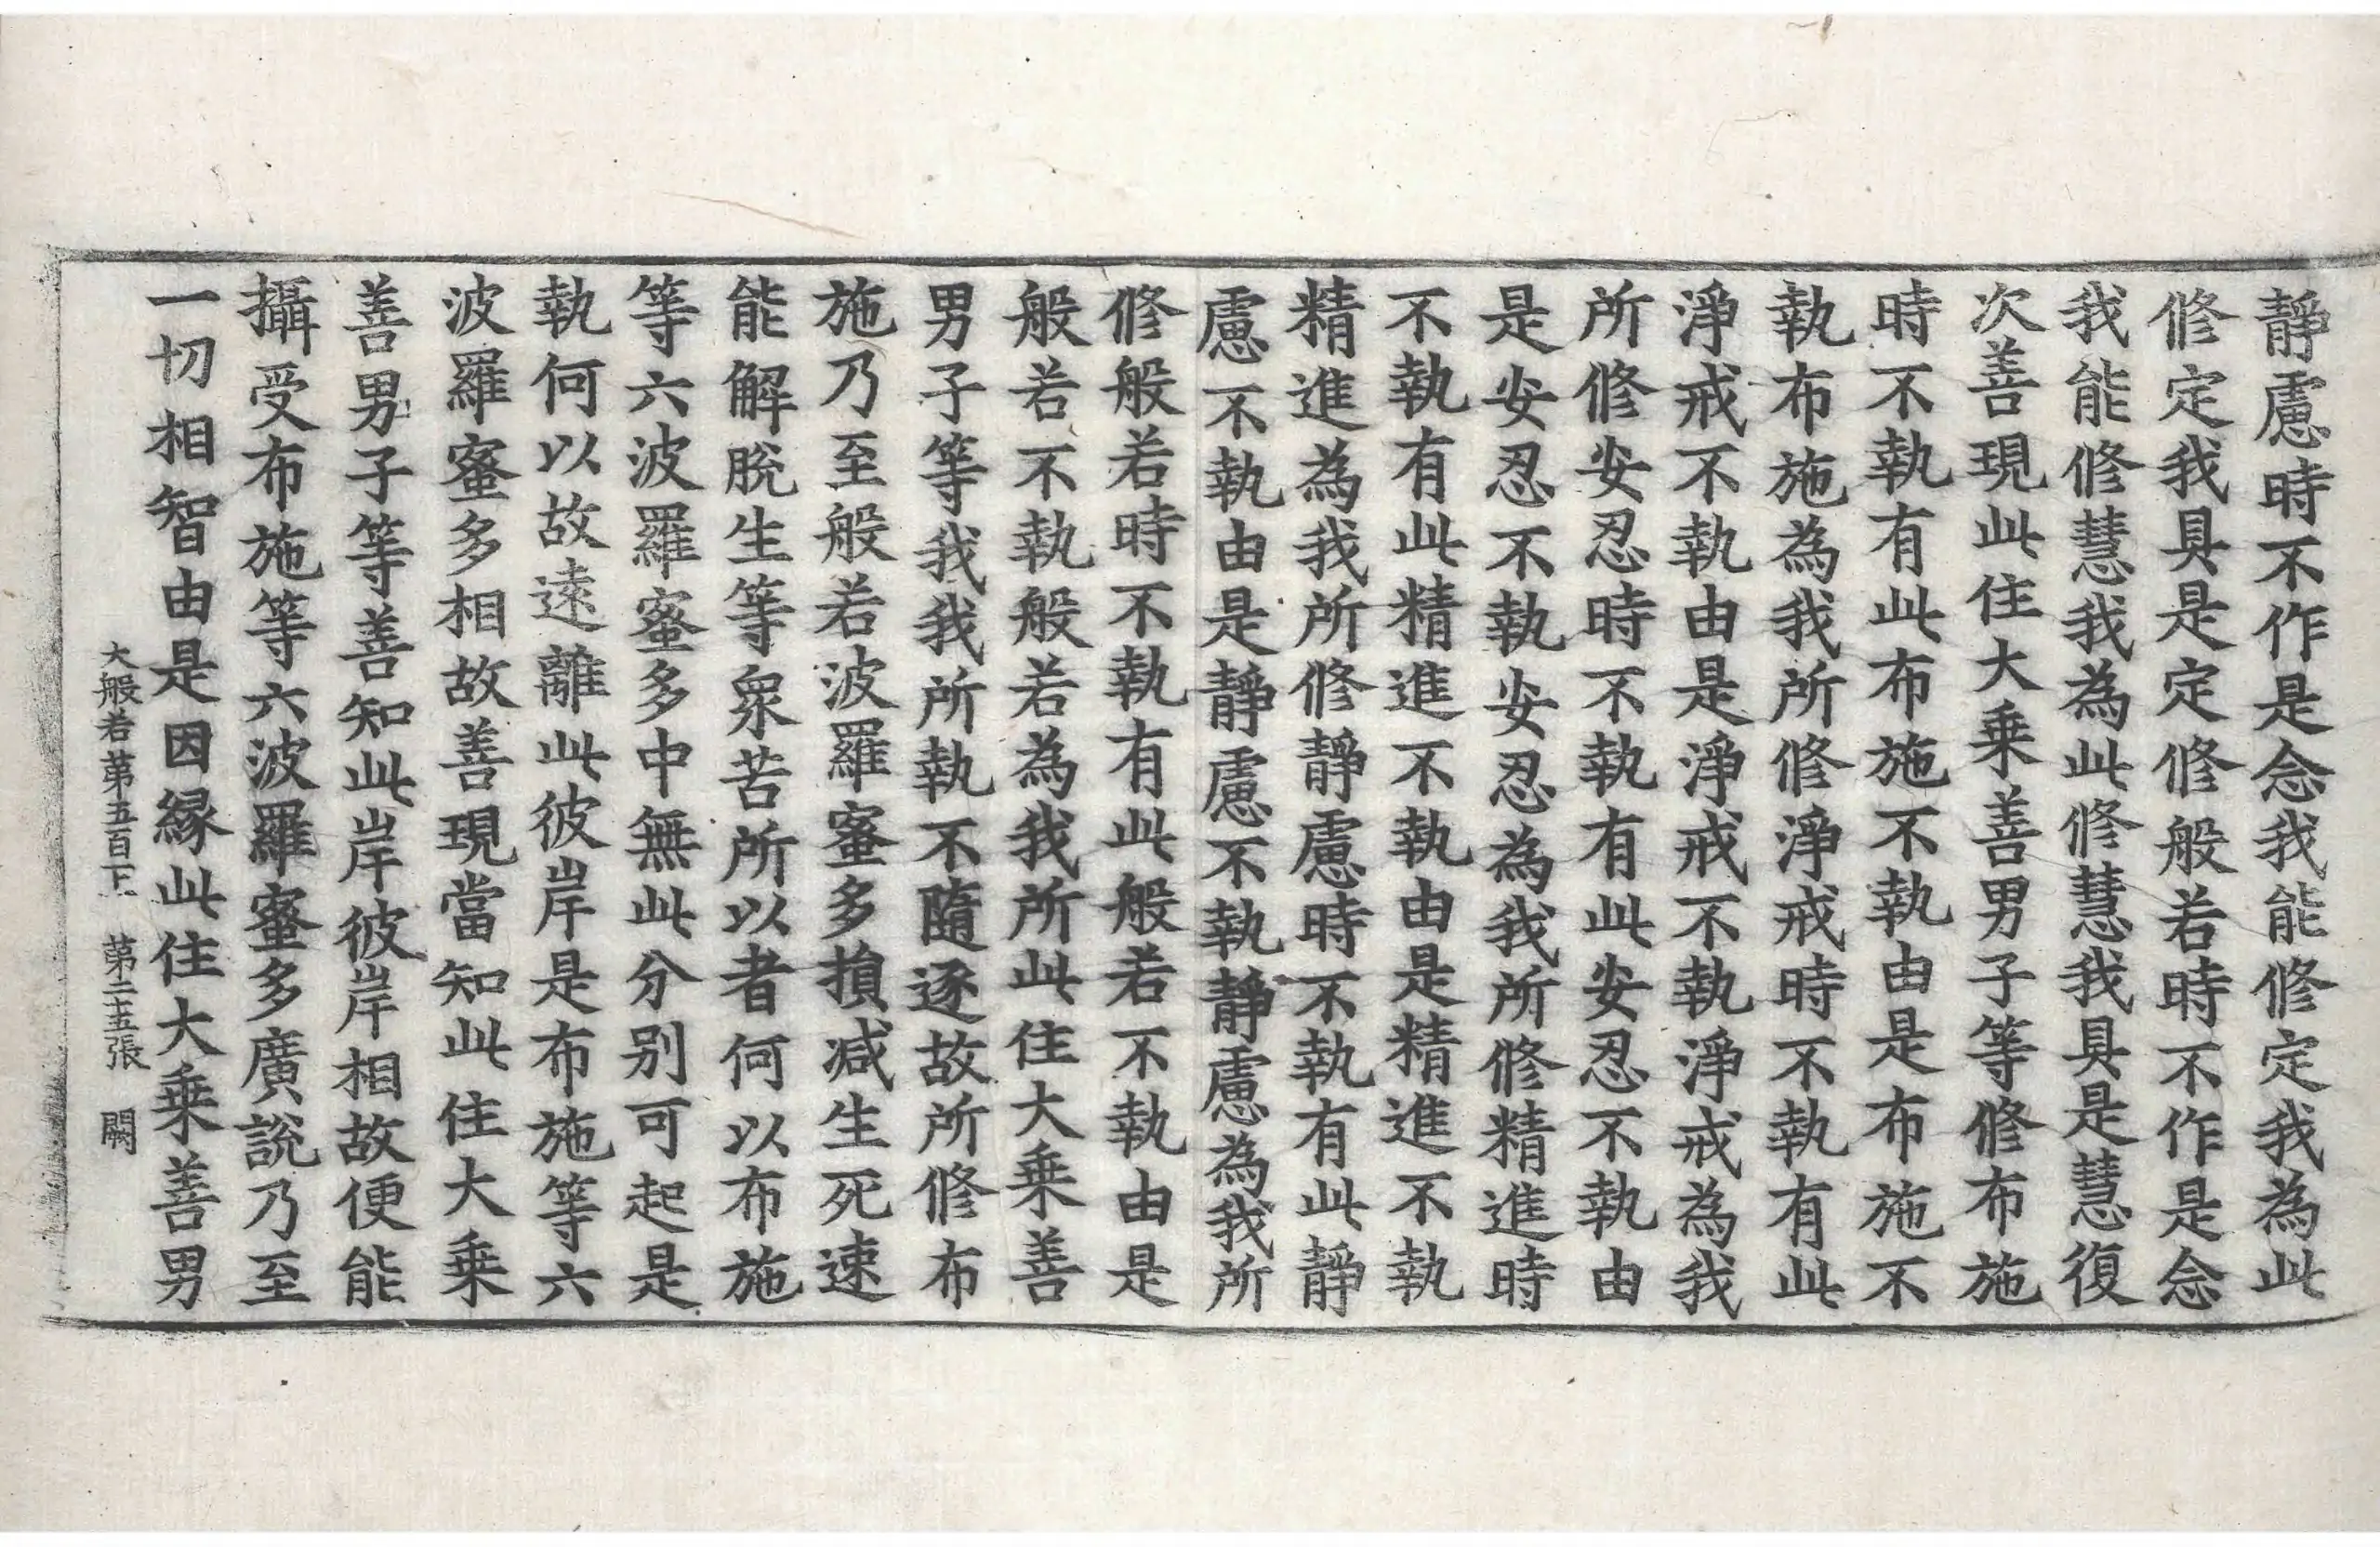 靜慮時不作是念我能修定我為此
修定我具是定修般若時不作是念
我能修慧我為此修慧我具是慧復
次善現此住大乗善男子等修布施
時不執有此布施不執由是布施不
執布施為我所修淨戒時不執有此
淨戒不執由是淨戒不執淨戒為我
所修安忍時不執有此安忍不執由
是安忍不執安忍為我所修精進時
不執有此精進不執由是精進不執
精進為我所修靜慮時不執有此靜
慮不執由是靜慮不執靜慮為我所
修般若時不執有此般若不執由是
般若不執般若為我所此住大乗善
男子等我我所執不隨逐故所修布
施乃至般若波羅蜜多損减生死速
能解脫生等衆苦所以者何以布施
等六波羅蜜多中無此分别可起是
執何以故遠離此彼岸是布施等六
波羅蜜多相故善現當知此住大乗
善男子等善知此岸彼岸相故便能
攝受布施等六波羅蜜多廣說乃至
一切相智由是因縁此住大乗善男
大般若第五百八十 第二十五張 闕